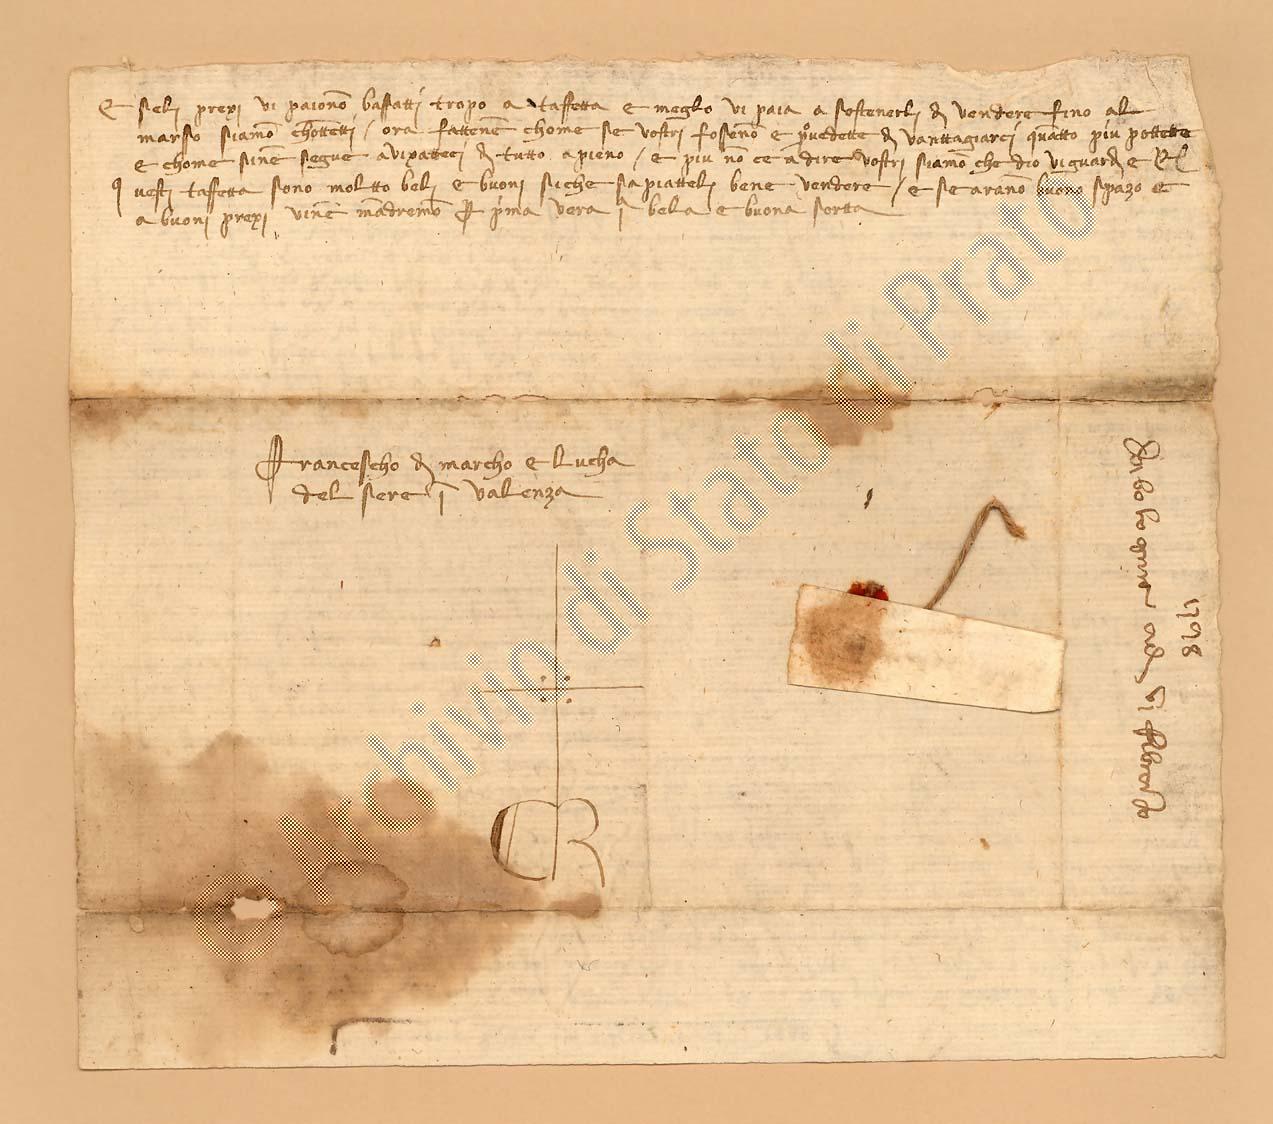 E se li prexi vi paiono bassatti tropo a taffetta e meglo vi paia a sostenerli di vendere fino al
marso siamo chonttetti / ora fattene chome se vostri fosseno e provedette di vanttagiarci quatto piu pottette
e chome sine segue avixatteci di tutto a pieno / e piu non ce a dire vostri siamo che dio vi guardi e
questi taffetta sono moltto beli e buoni siche sapiatteli bene vendere / e se arano buono spazo e
a buoni prexi vine madremo per prima vera i bela e buona sorta
Francescho di marcho e Lucha
del sere i valenza
1398
da bologna adi di febraio
© Archivio di Stato di Prato